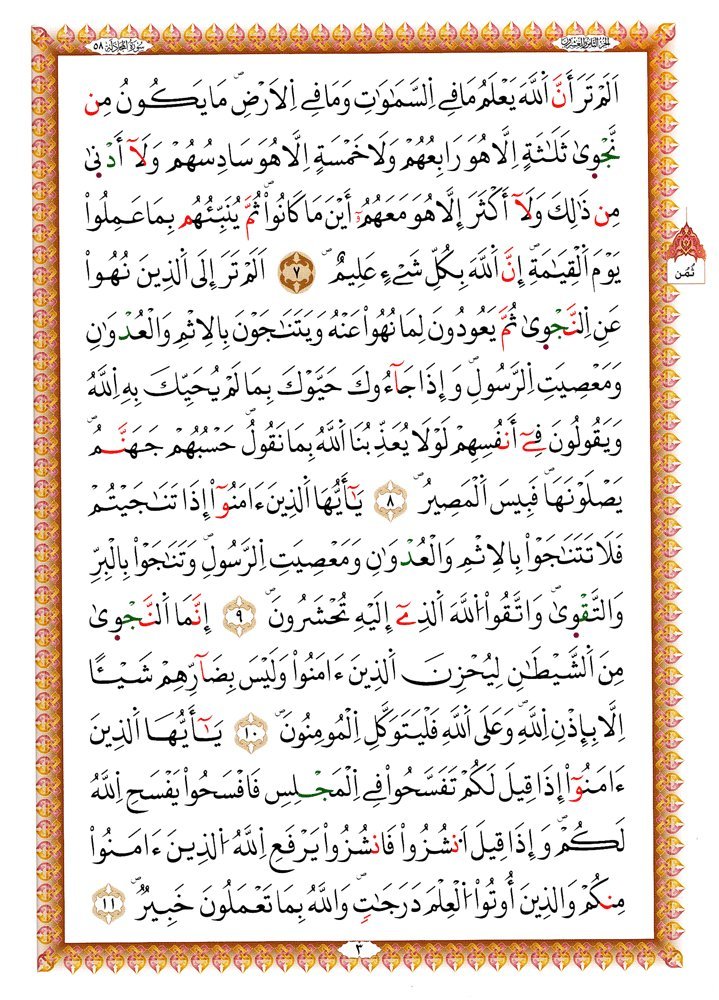 الجزء الثامن والعشرون
سورة المجادلة ٥٨
اَلَمْ تَرَ أَنَّ اَللَّهَ يَعْلَمُ مَا فِے اِلسَّمَٰوَٰتِ وَمَا فِے اِلَارْضِۖ مَا يَكُونُ مِن
نَّجْوۭىٰ ثَلَٰثَةٍ اِلَّا هُوَ رَابِعُهُمْ وَلَا خَمْسَةٍ اِلَّا هُوَ سَادِسُهُمْ وَلَآ أَدْنۭىٰ
مِن ذَٰلِكَ وَلَآ أَكْثَرَ إِلَّا هُوَ مَعَهُمُۥٓ أَيْنَ مَا كَانُواْۖ ثُمَّ يُنَبِّئُهُم بِمَا عَمِلُواْ
يَوْمَ اَلْقِيَٰمَةِۖ إِنَّ اَللَّهَ بِكُلِّ شَےْءٍ عَلِيمٌۖ ٧ اَلَمْ تَرَ إِلَى اَلذِينَ نُهُواْ
عَنِ اِلنَّجْوۭىٰ ثُمَّ يَعُودُونَ لِمَا نُهُواْ عَنْهُ وَيَتَنَٰجَوْنَ بِالِاثْمِ وَالْعُدْوَٰنِ
وَمَعْصِيَتِ اِلرَّسُولِۖ وَإِذَا جَآءُوكَ حَيَّوْكَ بِمَا لَمْ يُحَيِّكَ بِهِ اِللَّهُ
وَيَقُولُونَ فِےٓ أَنفُسِهِمْ لَوْلَا يُعَذِّبُنَا اَللَّهُ بِمَا نَقُولُۖ حَسْبُهُمْ جَهَنَّمُۖ
يَصْلَوْنَهَاۖ فَبِيسَ اَلْمَصِيرُۖ ٨ يَٰٓأَيُّهَا اَلذِينَ ءَامَنُوٓاْ إِذَا تَنَٰجَيْتُمْ
فَلَا تَتَنَٰجَوْاْ بِالِاثْمِ وَالْعُدْوَٰنِ وَمَعْصِيَتِ اِلرَّسُولِۖ وَتَنَٰجَوْاْ بِالْبِرِّ
وَالتَّقْوۭىٰۖ وَاتَّقُواْ اُللَّهَ اَلذِےٓ إِلَيْهِ تُحْشَرُونَۖ ٩ إِنَّمَا اَلنَّجْوۭىٰ
مِنَ اَلشَّيْطَٰنِ لِيُحْزِنَ اَلذِينَ ءَامَنُواْ وَلَيْسَ بِضَآرِّهِمْ شَيْـًٔا
اِلَّا بِإِذْنِ اِللَّهِۖ وَعَلَى اَللَّهِ فَلْيَتَوَكَّلِ اِلْمُومِنُونَۖ ١٠ يَٰٓأَيُّهَا اَلذِينَ
ءَامَنُوٓاْ إِذَا قِيلَ لَكُمْ تَفَسَّحُواْ فِے اِلْمَجْلِسِ فَافْسَحُواْ يَفْسَحِ اِللَّهُ
لَكُمْۖ وَإِذَا قِيلَ اَنشُزُواْ فَانشُزُواْ يَرْفَعِ اِللَّهُ اُلذِينَ ءَامَنُواْ
مِنكُمْ وَالذِينَ أُوتُواْ اُلْعِلْمَ دَرَجَٰتٍۖ وَاللَّهُ بِمَا تَعْمَلُونَ خَبِيرٌۖ ١١
ثُمُن
٣